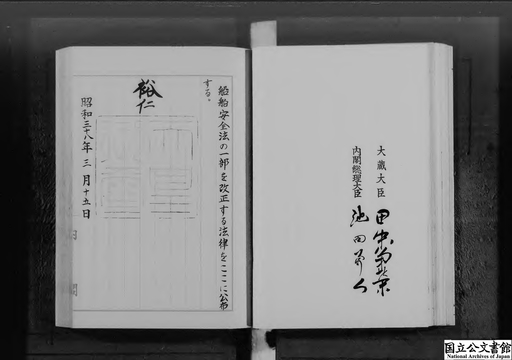 船舶安全法の一部を改正する法律をここに公布
する。
裕仁
昭和三十八年三月十五日
大蔵大臣 田中角榮
内閣総理大臣 池田勇人
国立公文書館
National Archives of Japan